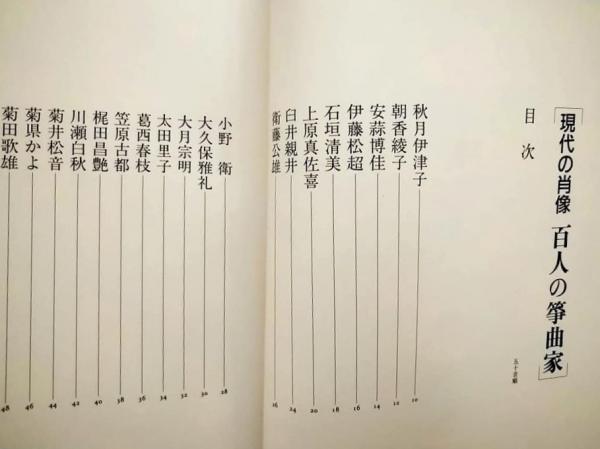 「現代の肖像 百人の箏曲家」
目次
五十音順
秋月伊津子 10
朝香綾子 12
安蒜博佳 14
伊藤松超 16
石垣清美 18
上原真佐喜 20
臼井親井 24
衛藤公雄 26
小野 衛 28
大久保雅礼 30
大月宗明 32
太田里子 34
葛西春枝 36
笠原古都 38
梶田昌艶 40
川瀬白秋 42
菊井松音 44
菊県かよ 46
菊田歌雄 48